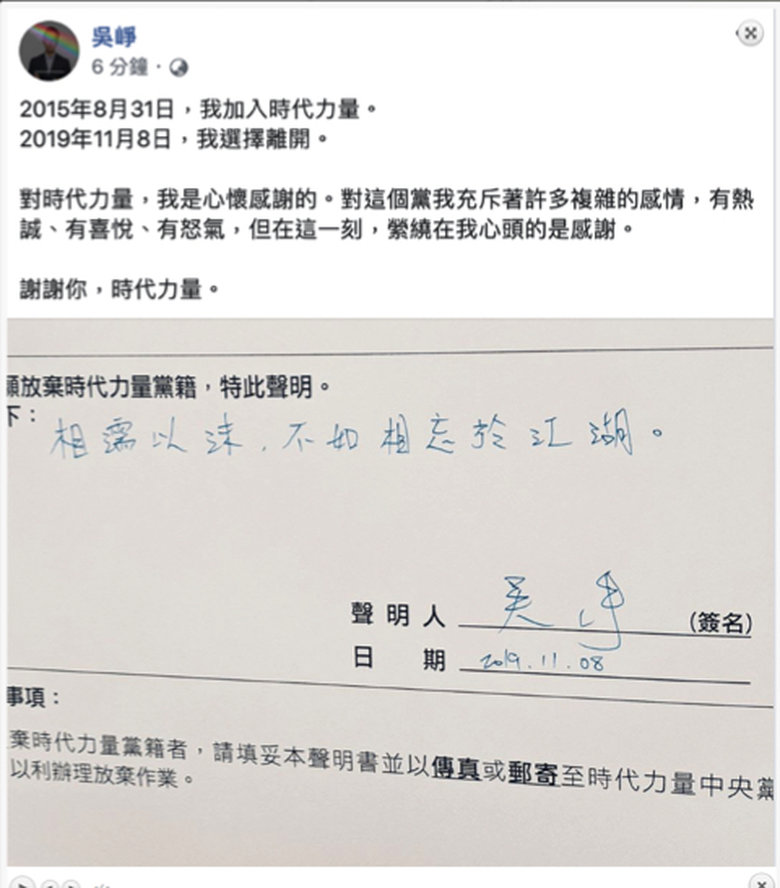 吳崢
6 分鐘 ·
2015年8月31日，我加入時代力量。
2019年11月8日，我選擇離開。
對時代力量，我是心懷感謝的。對這個黨我充斥著許多複雜的感情，有熱
誠、有喜悅、有怒氣，但在這一刻，縈繞在我心頭的是感謝。
謝謝你，時代力量。
願放棄時代力量黨籍，特此聲明。
下：
相濡以沫，不如相忘於江湖。
聲明人 吳崢 (簽名)
日 期 2019.11.08
事項：
棄時代力量黨籍者，請填妥本聲明書並以傳真或郵寄至時代力量中央黨
以利辦理放棄作業。